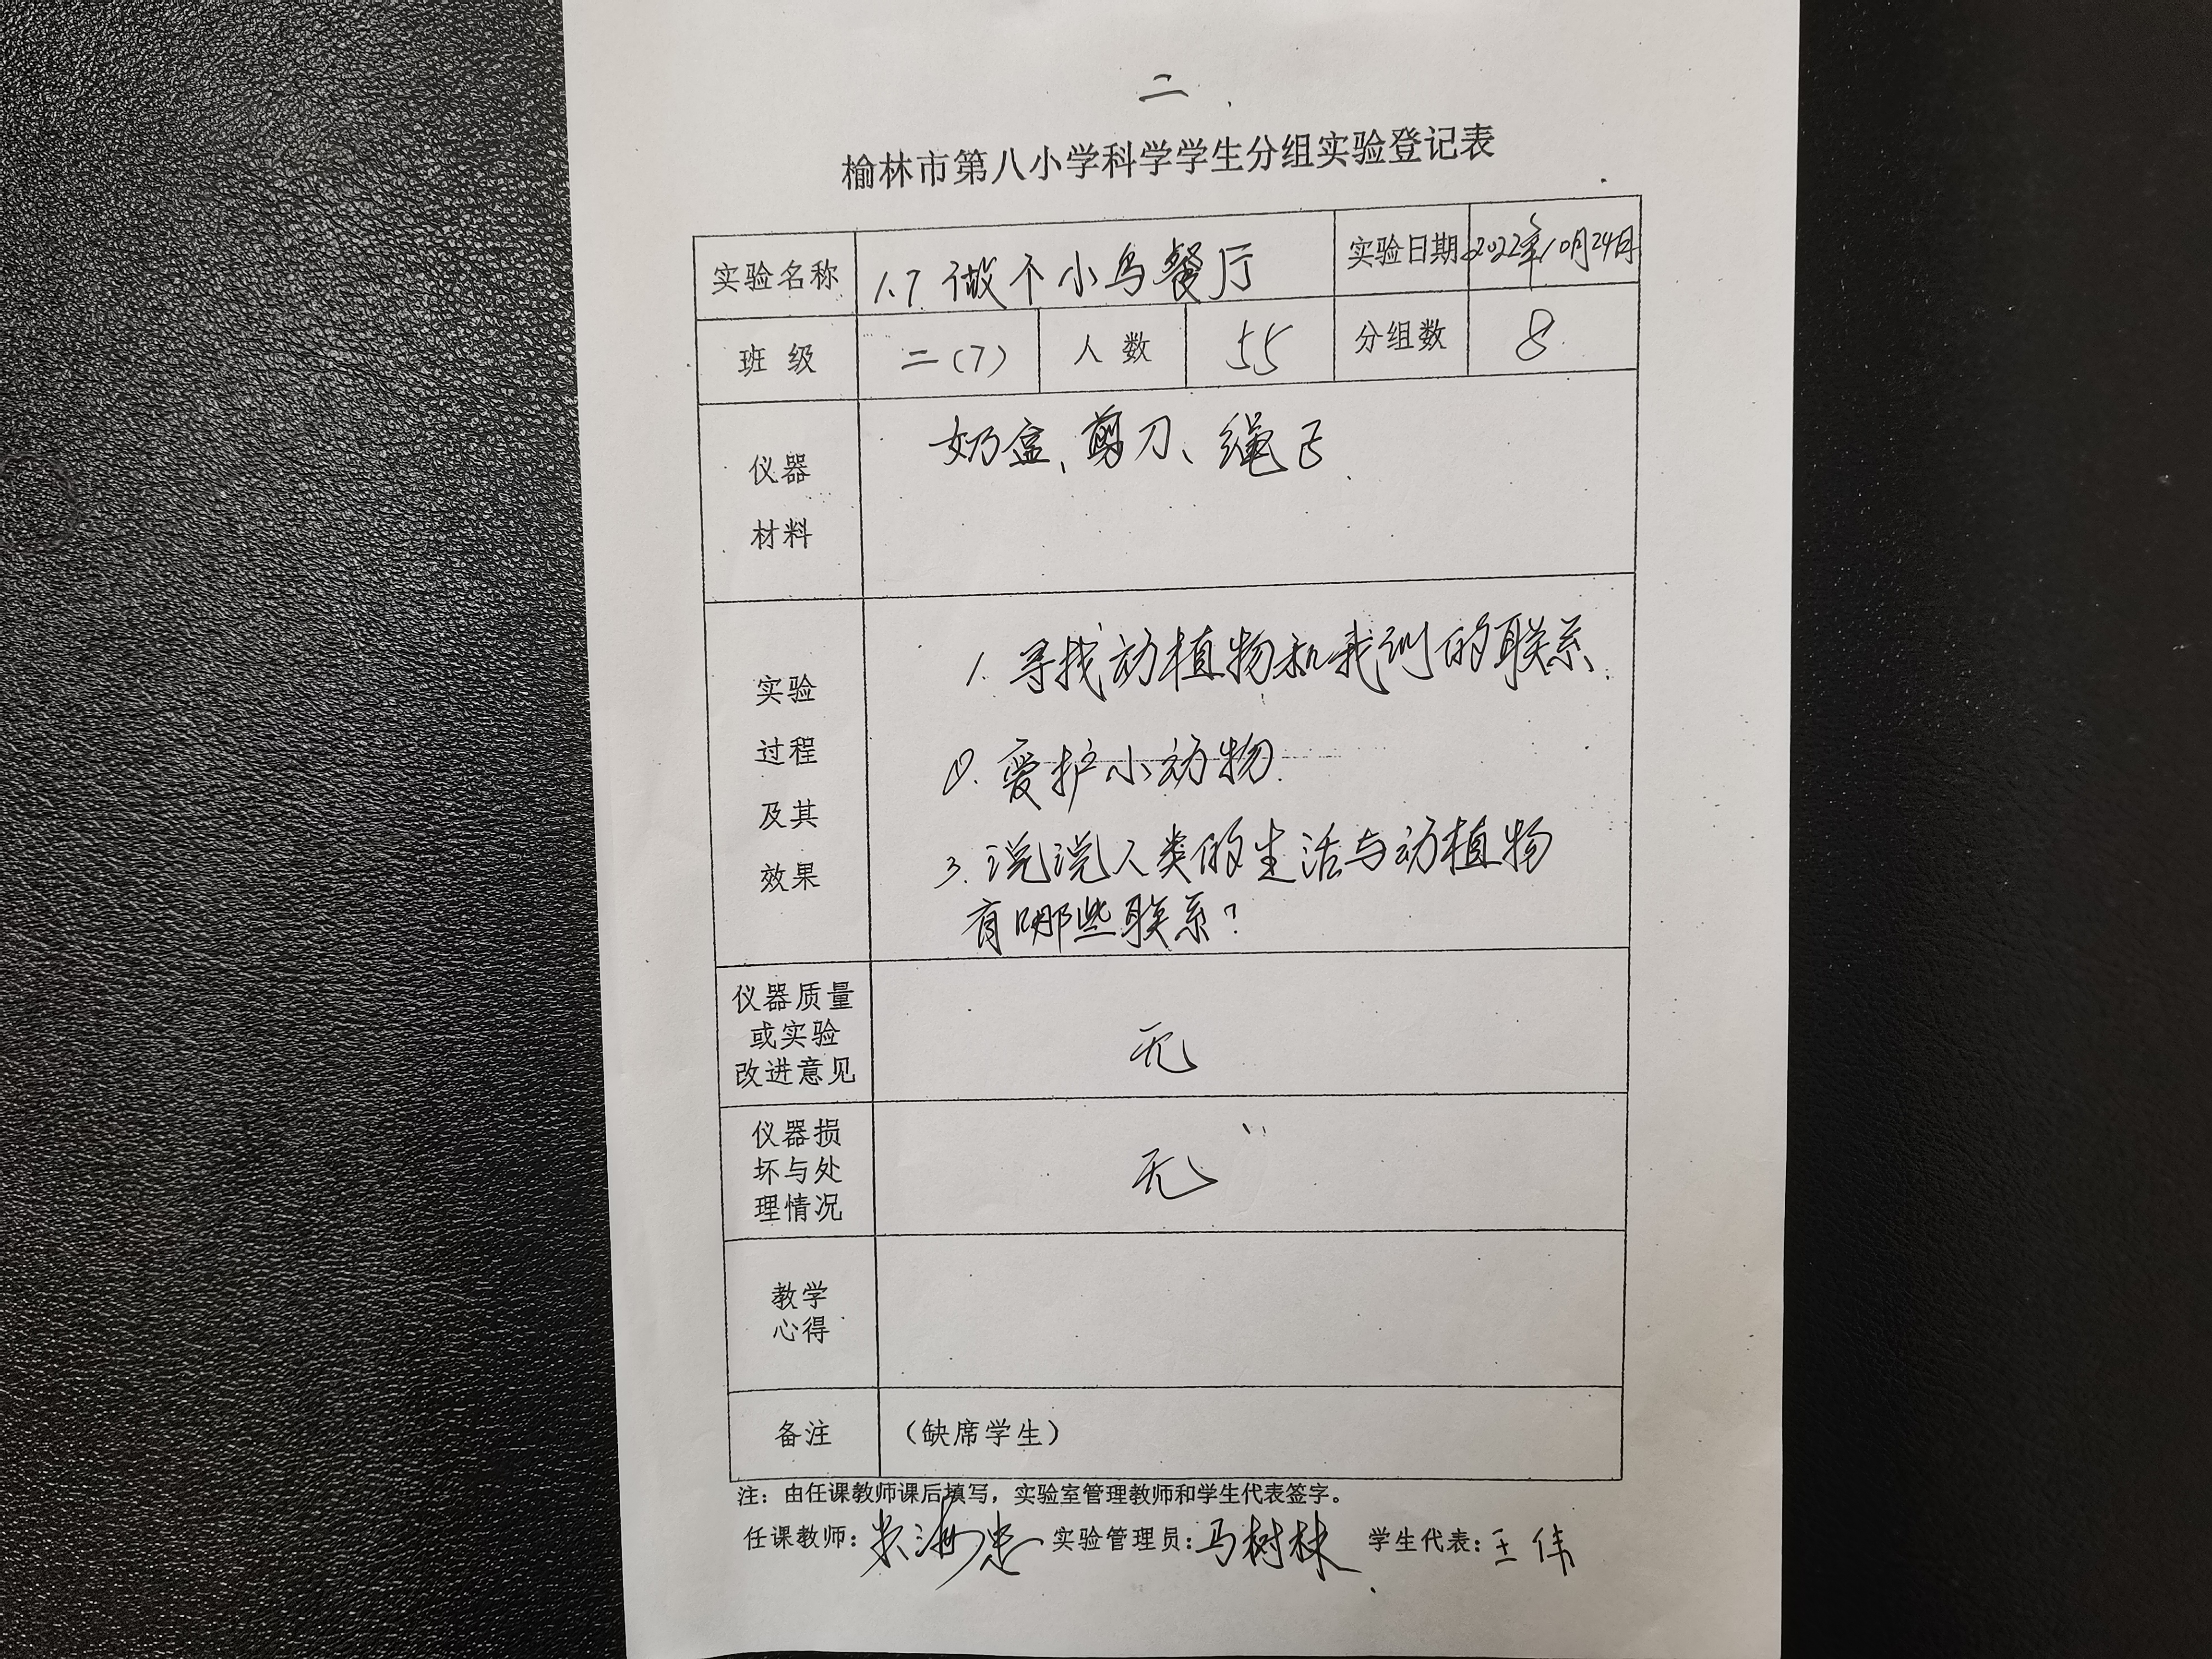 二
榆林市第八小学科学学生分组实验登记表
实验名称 1.7 做个小鸟餐厅 实验日期 2022年10月24日
班 级 二(7) 人 数 55 分组数 8
仪器
材料
奶盒、剪刀、绳子
实验
过程
及其
效果
1. 寻找动植物和我们的联系.
2. 爱护小动物.
3. 说说人类的生活与动植物
有哪些联系?
仪器质量
或实验
改进意见
无
仪器损
坏与处
理情况
无
教学
心得
备注 (缺席学生)
注：由任课教师课后填写，实验室管理教师和学生代表签字。
任课教师: 实验管理员: 马树林 学生代表: 王伟